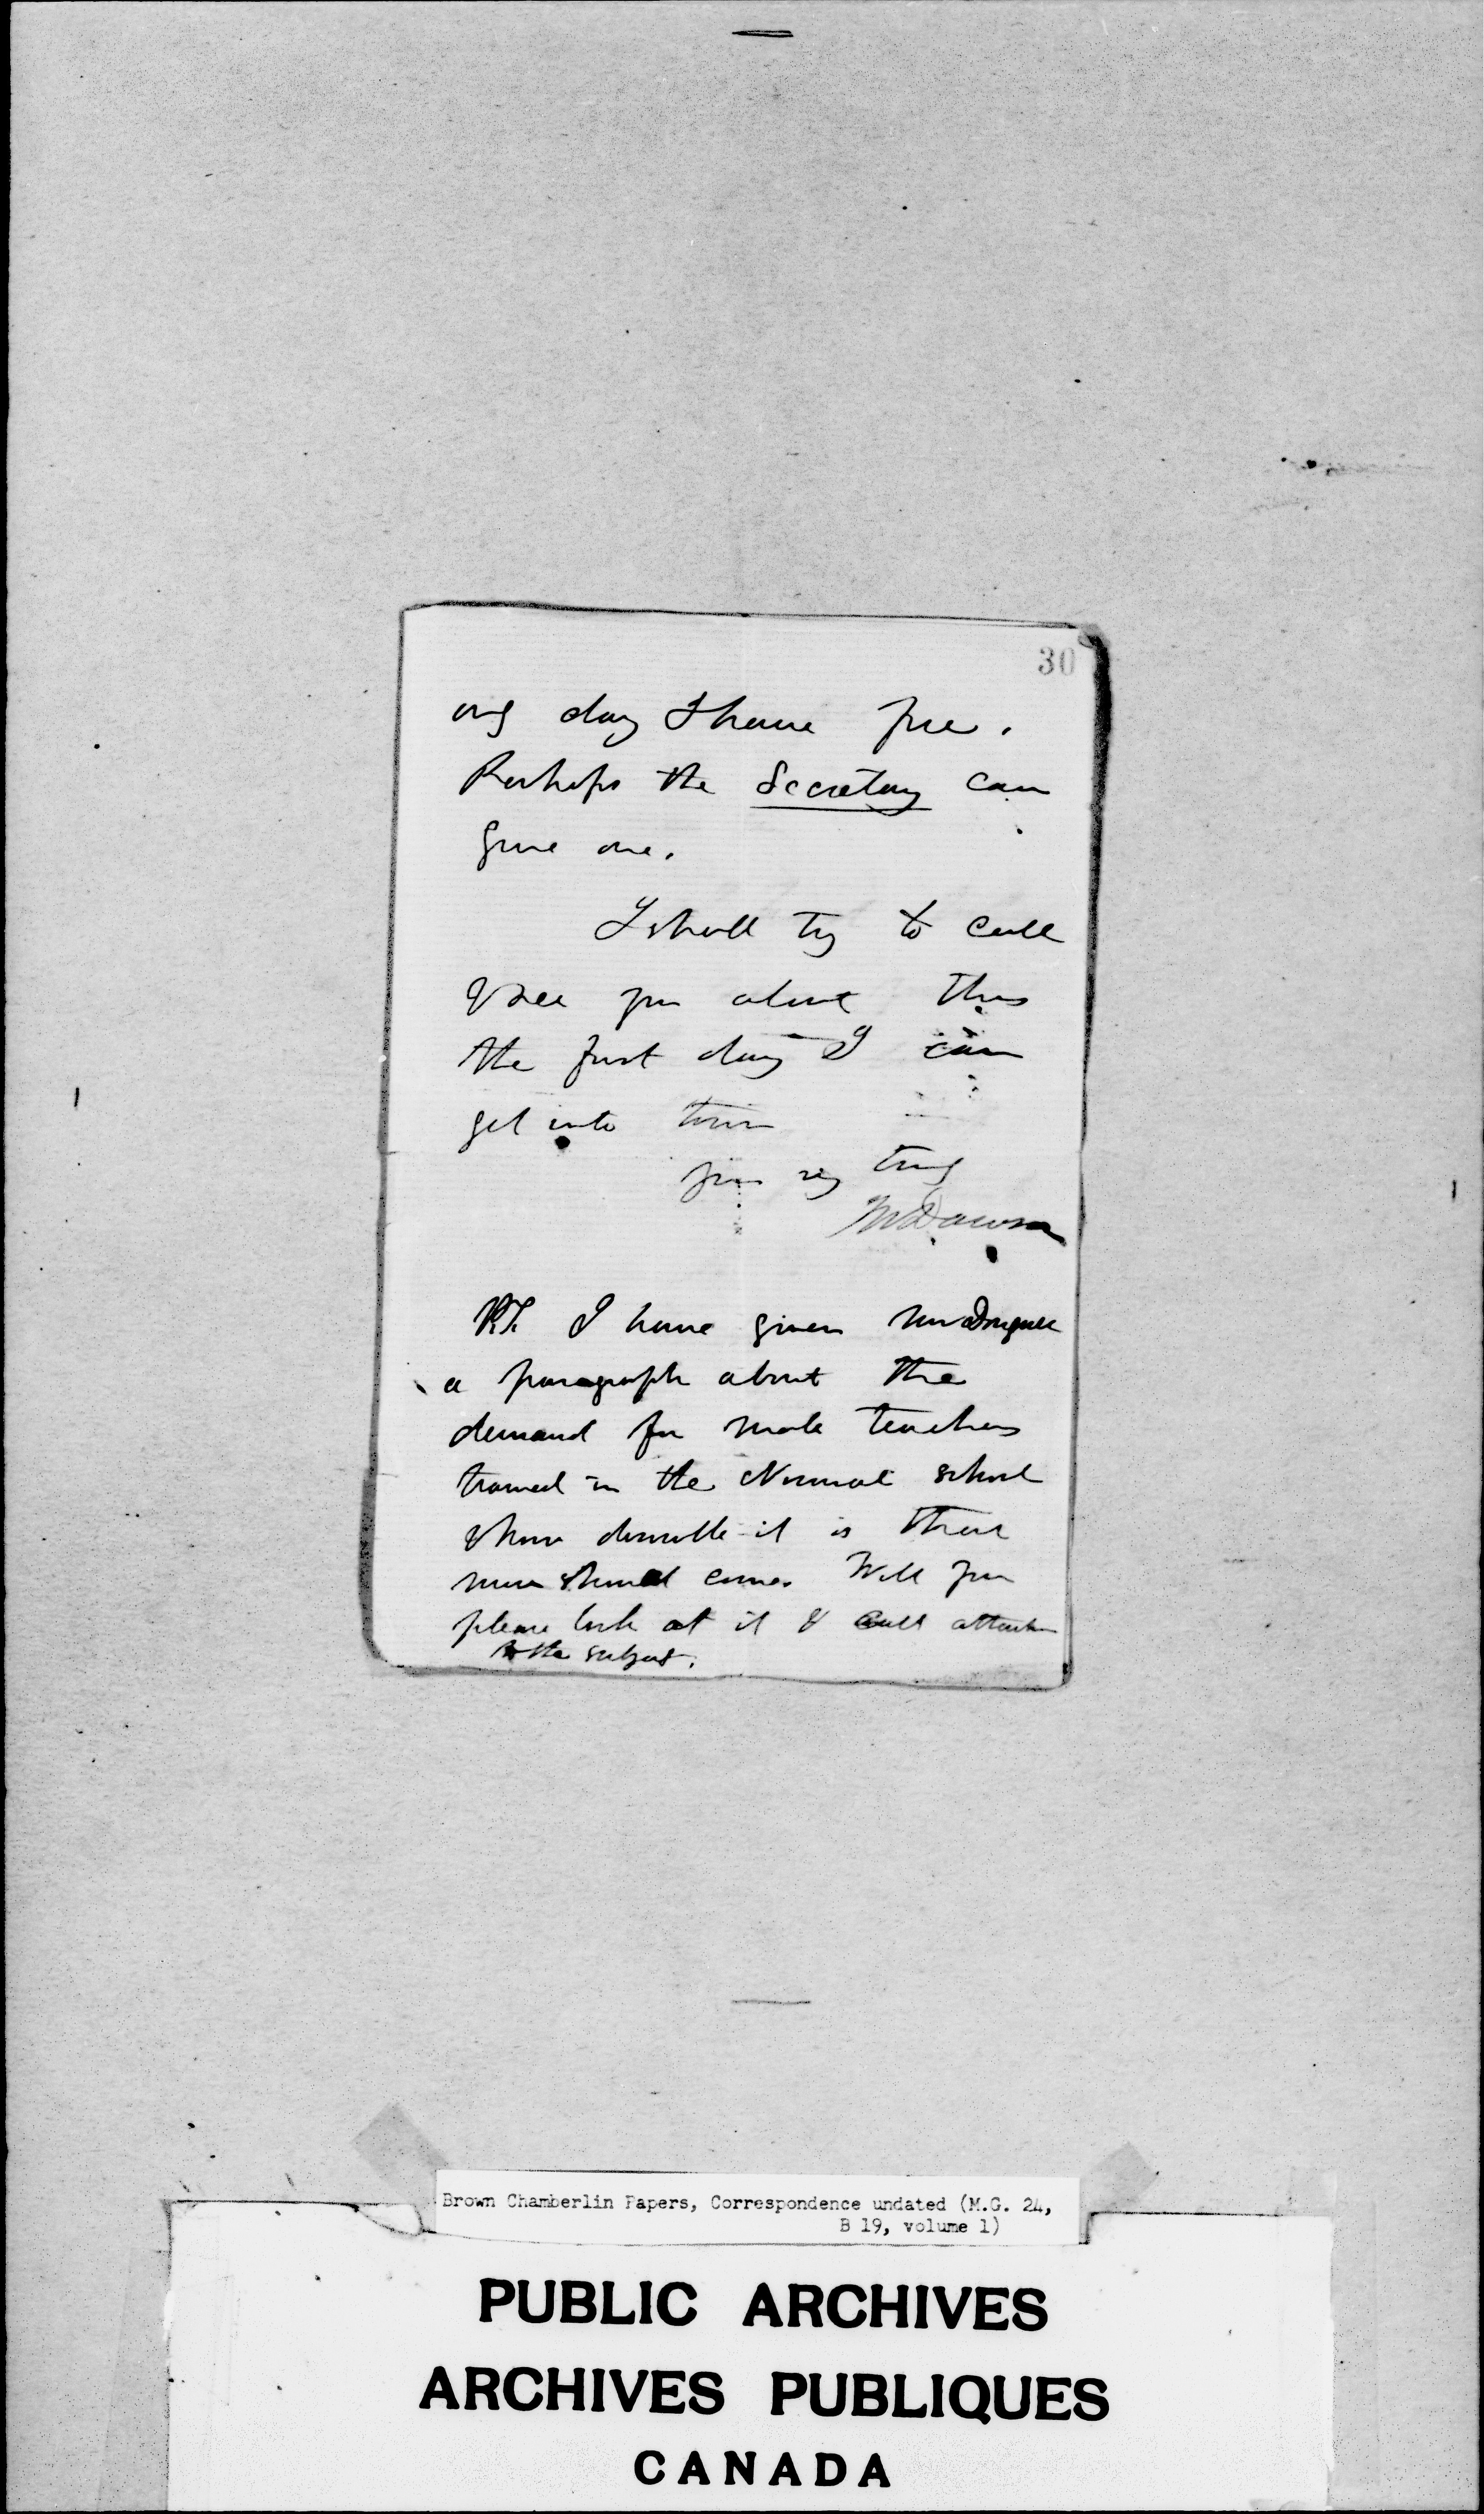 30
any day I have free.
Perhaps the Secretary can
give one.
I shall try to call
& see you about this
the first day I can
get into town
yours very truly
JWDawson
P.S. I have given
a paragraph about the
demand for male teachers
trained in the Normal school
& how desirable it is that
more should come. Will you
please look at it & call attention
to the subject.
Brown Chamberlin Papers, Correspondence undated (M.G. 24,
B 19, volume 1)
PUBLIC ARCHIVES
ARCHIVES PUBLIQUES
CANADA